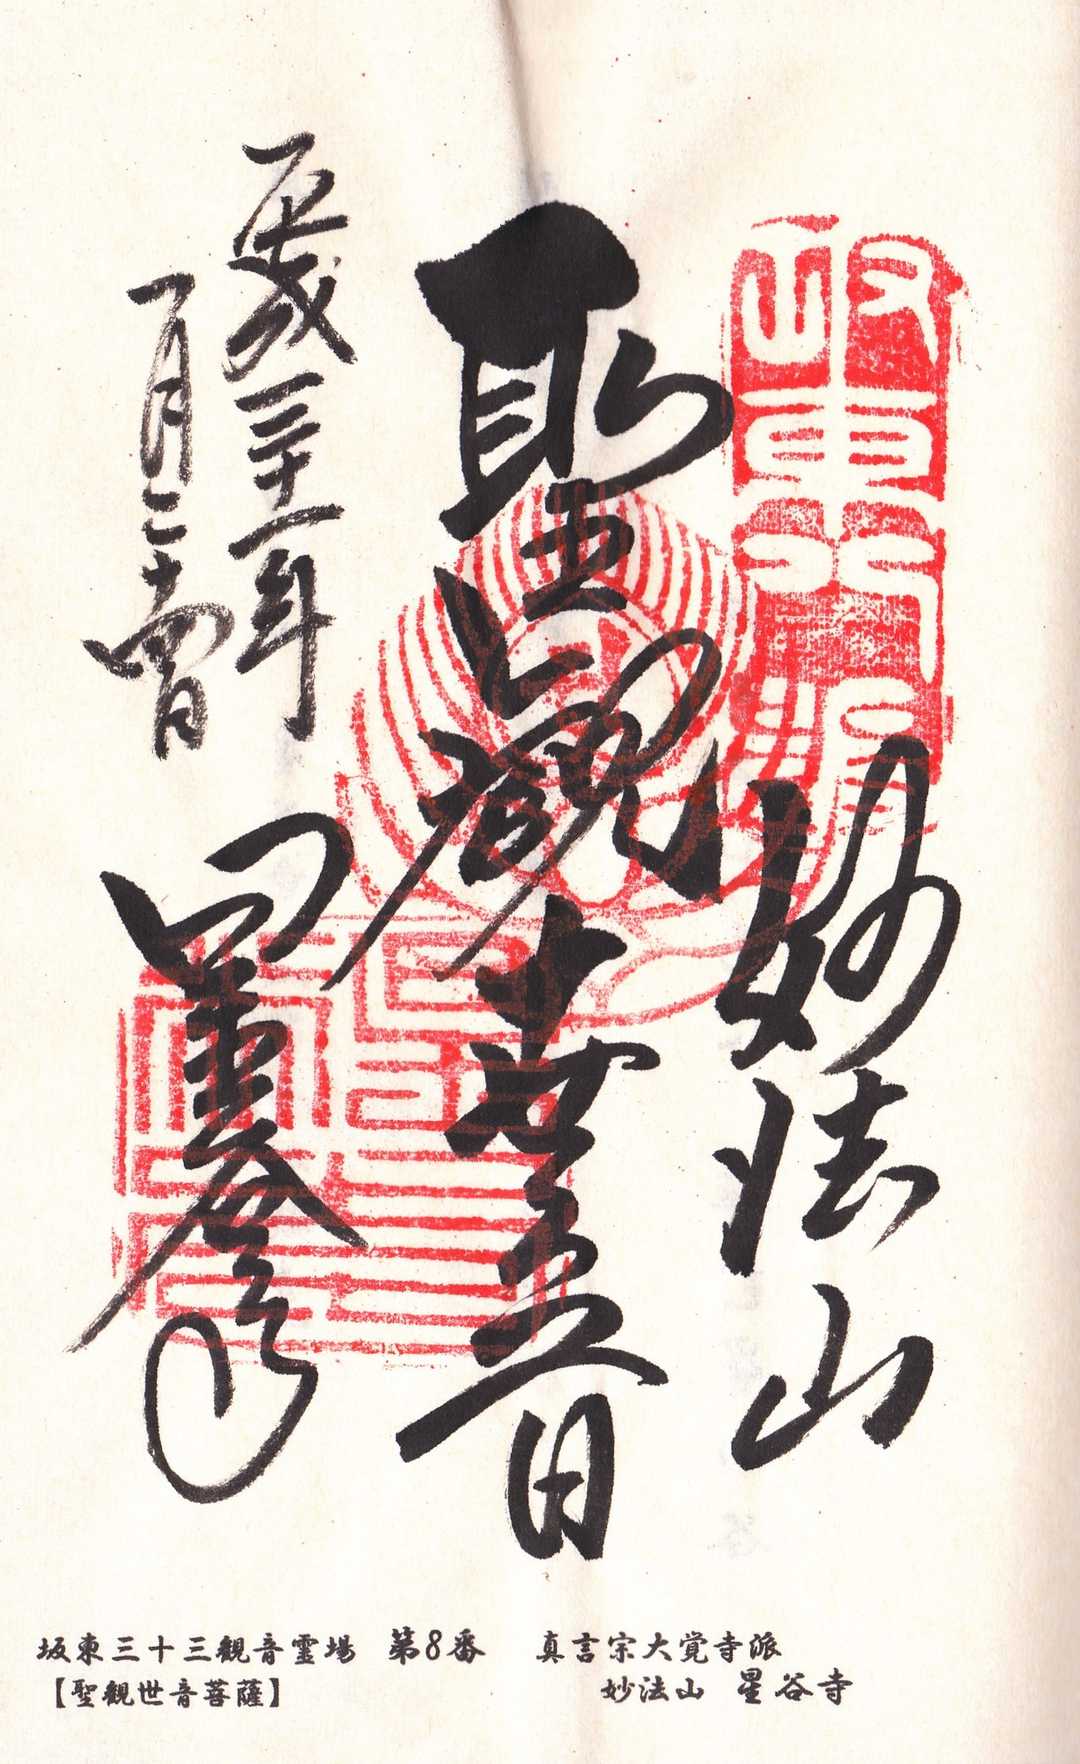 坂東八番
妙法山
聖観世音
平成三十一年
一月二十四日
星谷寺
坂東三十三観音霊場 第8番
【聖観世音菩薩】
真言宗大覚寺派
妙法山 星谷寺